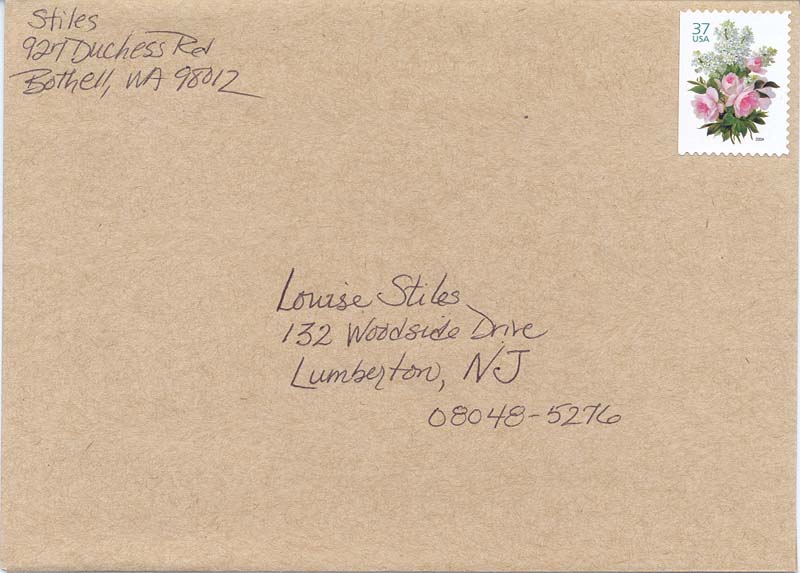 Stiles
927 Duchess Rd
Bothell, WA 98012
37
USA
2004
Louise Stiles
132 Woodside Drive
Lumberton, NJ
08048-5276